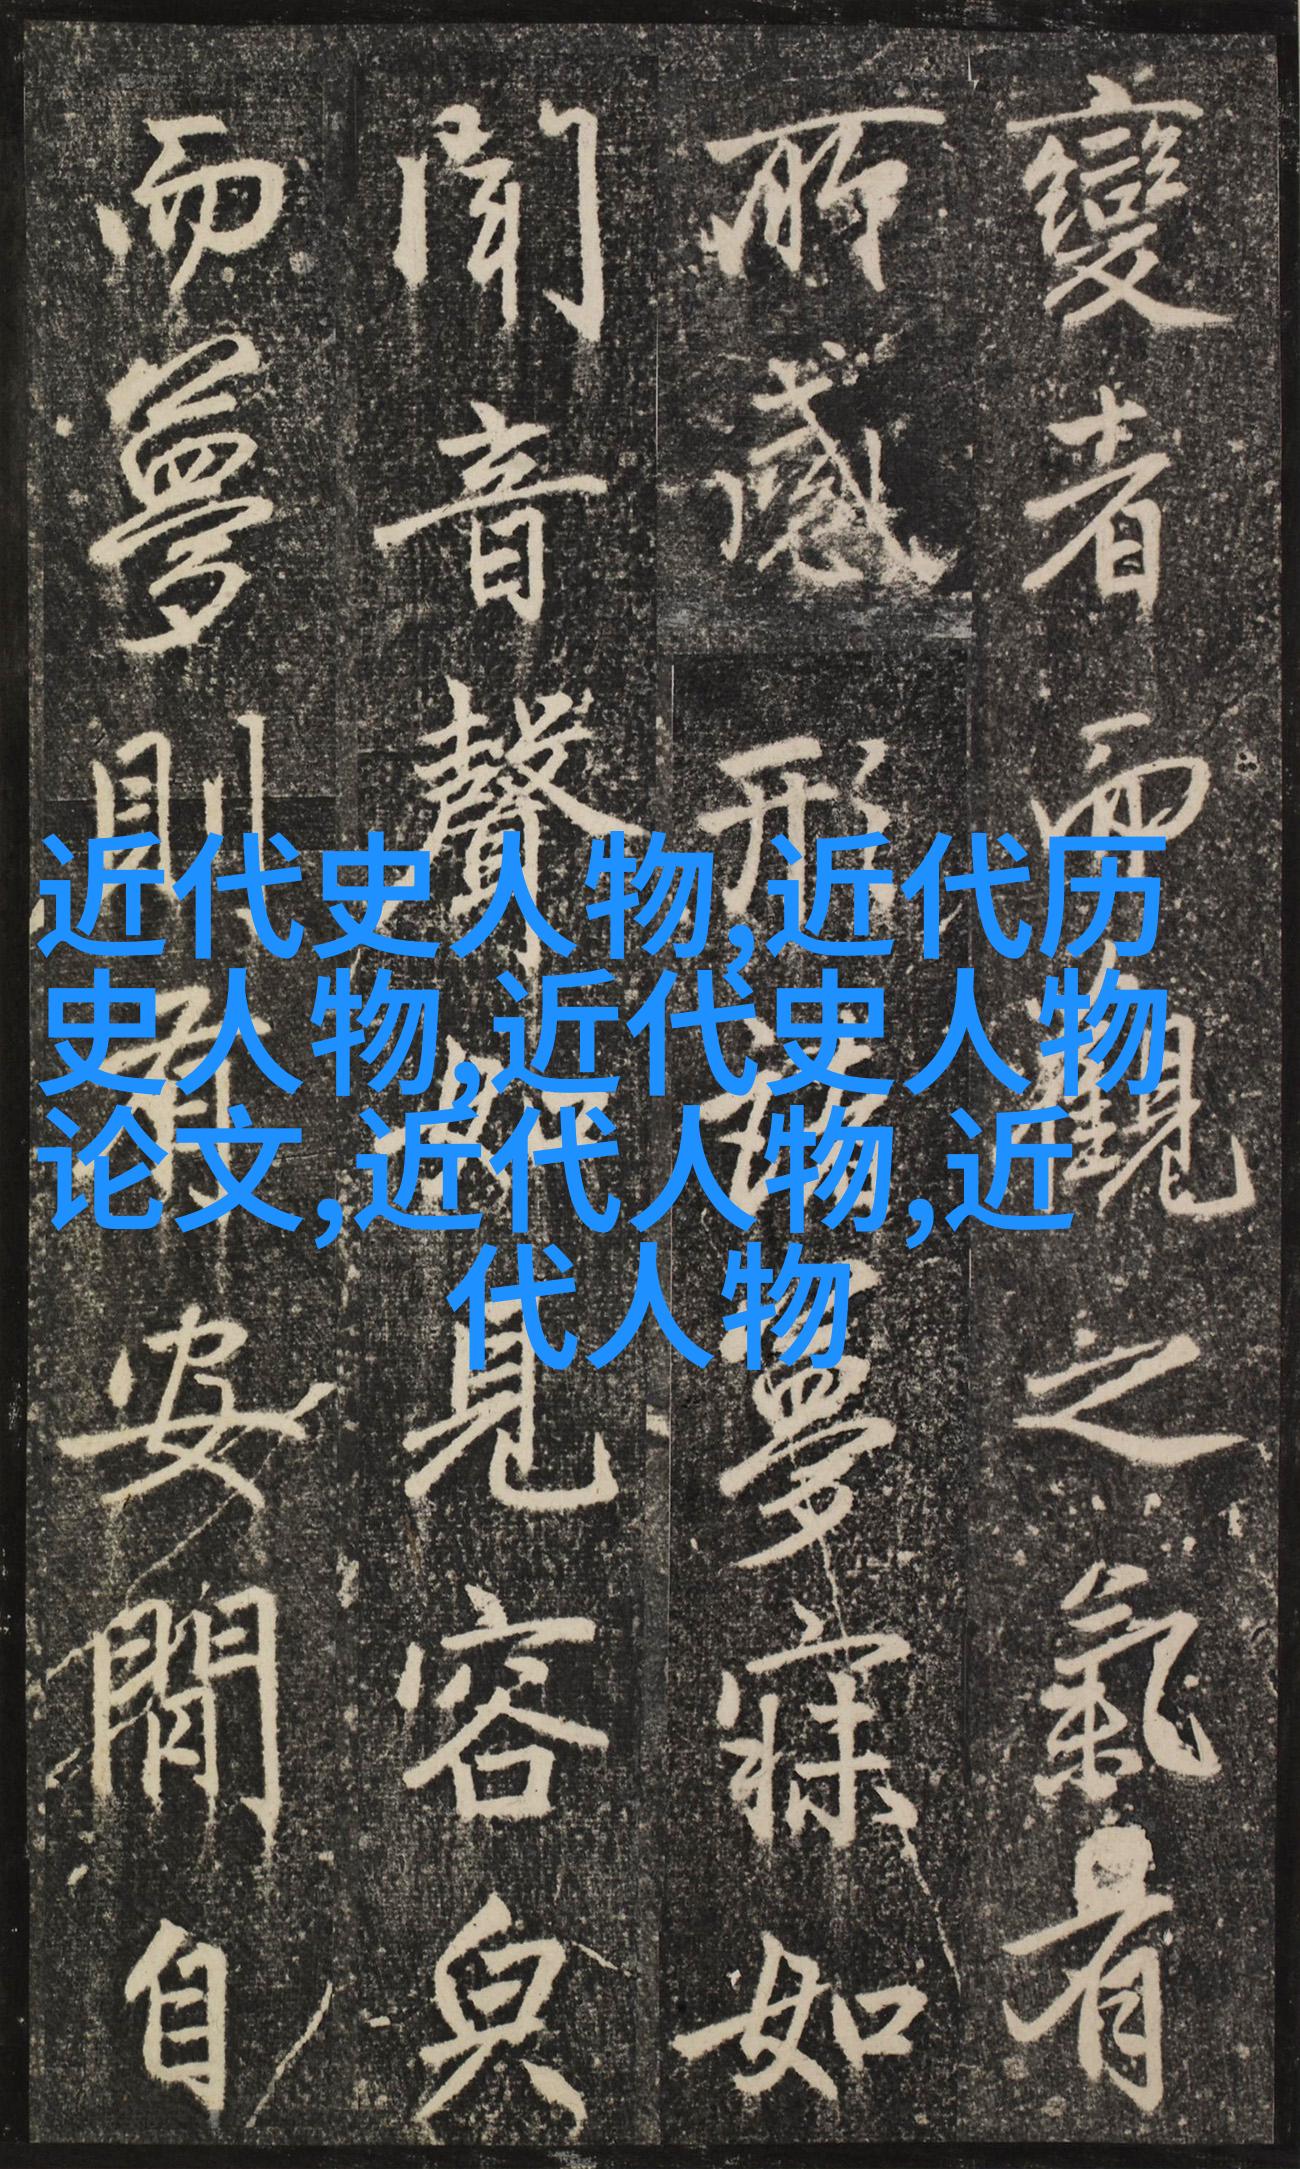 變者而觀之氣有
所感形諸夢寐如
聞音聲如見容皃
而夢則有安閒自
近代史人物,近代历
史人物,近代史人物
论文,近代人物,近
代人物